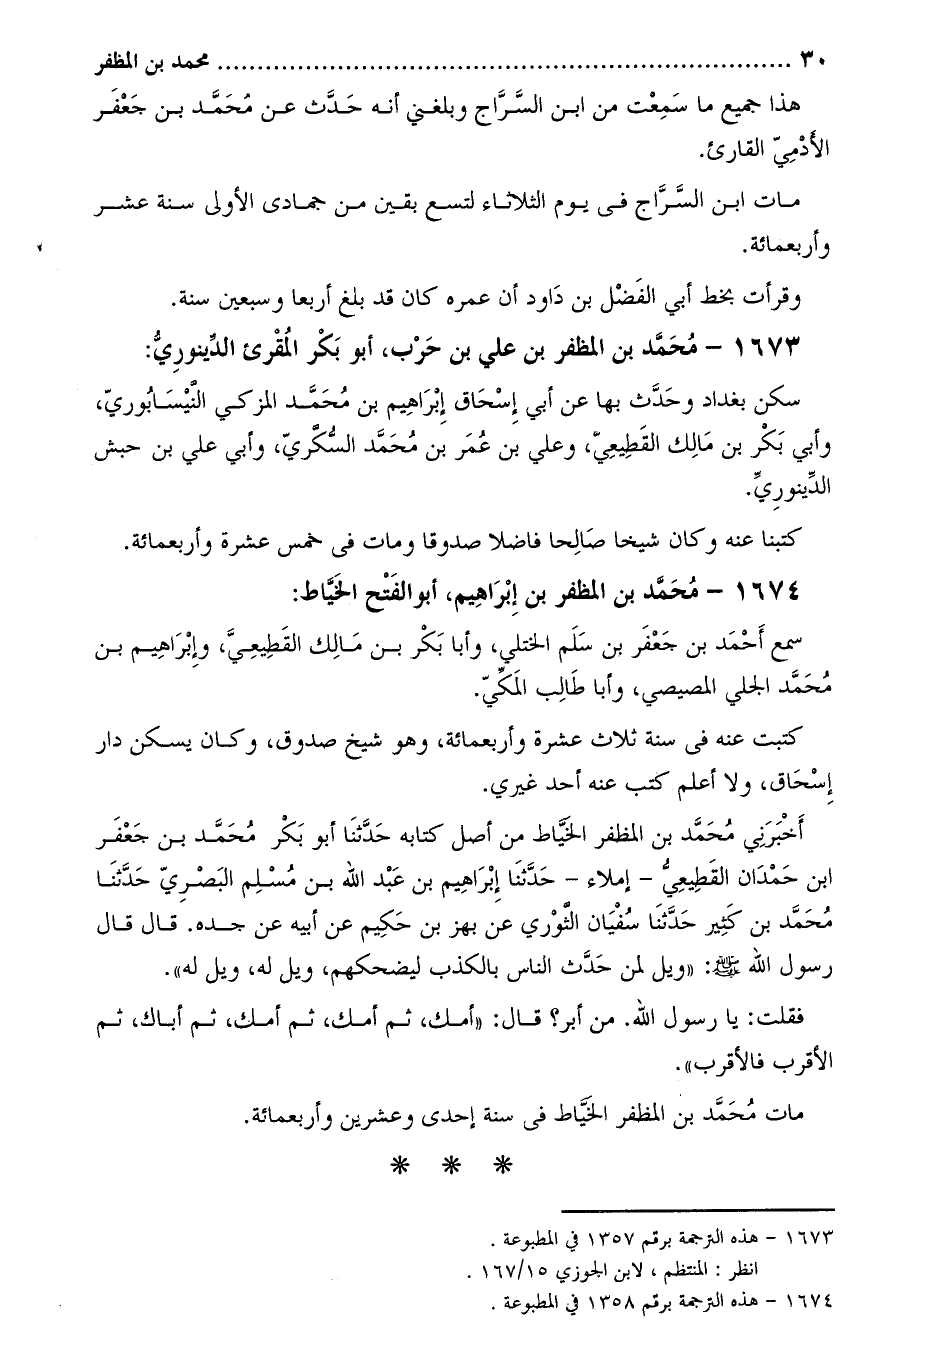 ٣٠ ........................................................................ محمد بن المظفر
هذا جميع ما سَمِعْت من ابن السَّرَّاج وبلغني أنه حَدَّث عن مُحَمَّد بن جَعْفَر
الأَدْمِيّ القارئ.
مات ابن السَّرَّاج فى يوم الثلاثاء لتسع بقين من جمادى الأولى سنة عشر
وأربعمائة.
وقرأت بخط أبي الفَضْل بن دَاود أن عمره كان قد بلغ أربعا وسبعين سنة.
١٦٧٣ - مُحَمَّد بن المظفر بن علي بن حَرْب، أبو بَكْر المُقْرئ الدِّينوريُّ:
سكن بغداد وحَدَّث بها عن أبي إِسْحَاق إِبْرَاهِيم بن مُحَمَّد المزكي النَّيْسَابُوريّ،
وأبي بَكْر بن مَالِك القَطِيعِيّ، وعلي بن عُمَر بن مُحَمَّد السُّكَّريّ، وأبي علي بن حبش
الدِّينوريِّ.
كتبنا عنه وكان شيخا صَالِحا فاضلا صدوقا ومات فى خمس عشرة وأربعمائة.
١٦٧٤ - مُحَمَّد بن المظفر بن إِبْرَاهِيم، أبوالفَتْح الخَيَّاط:
سمع أَحْمَد بن جَعْفَر بن سَلَم الختلي، وأبا بَكْر بن مَالِك القَطِيعِيَّ، وإِبْرَاهِيم بن
مُحَمَّد الجلي المصيصي، وأبا طَالِب المَكِّيّ.
كتبت عنه فى سنة ثلاث عشرة وأربعمائة، وهو شيخ صدوق، وكان يسكن دار
إِسْحَاق، ولا أعلم كتب عنه أحد غيري.
أَخْبَرَنِي مُحَمَّد بن المظفر الخَيَّاط من أصل كتابه حَدَّثَنَا أبو بَكْر مُحَمَّد بن جَعْفَر
ابن حَمْدَان القَطِيعِيُّ - إملاء - حَدَّثَنَا إِبْرَاهِيم بن عَبْد الله بن مُسْلِم البَصْرِيّ حَدَّثَنَا
مُحَمَّد بن كَثِير حَدَّثَنَا سُفْيَان الثَّوْري عن بهز بن حَكِيم عن أبيه عن جده. قال قال
رسول الله ﷺ: «ويل لمن حَدَّث الناس بالكذب ليضحكهم، ويل له، ويل له».
فقلت: يا رسول الله. من أبر؟ قال: «أمك، ثم أمك، ثم أمك، ثم أباك، ثم
الأقرب فالأقرب».
مات مُحَمَّد بن المظفر الخَيَّاط فى سنة إحدى وعشرين وأربعمائة.
* * *
١٦٧٣ - هذه الترجمة برقم ١٣٥٧ في المطبوعة .
انظر : المنتظم ، لابن الجوزي ١٦٧/١٥ .
١٦٧٤ - هذه الترجمة برقم ١٣٥٨ في المطبوعة .